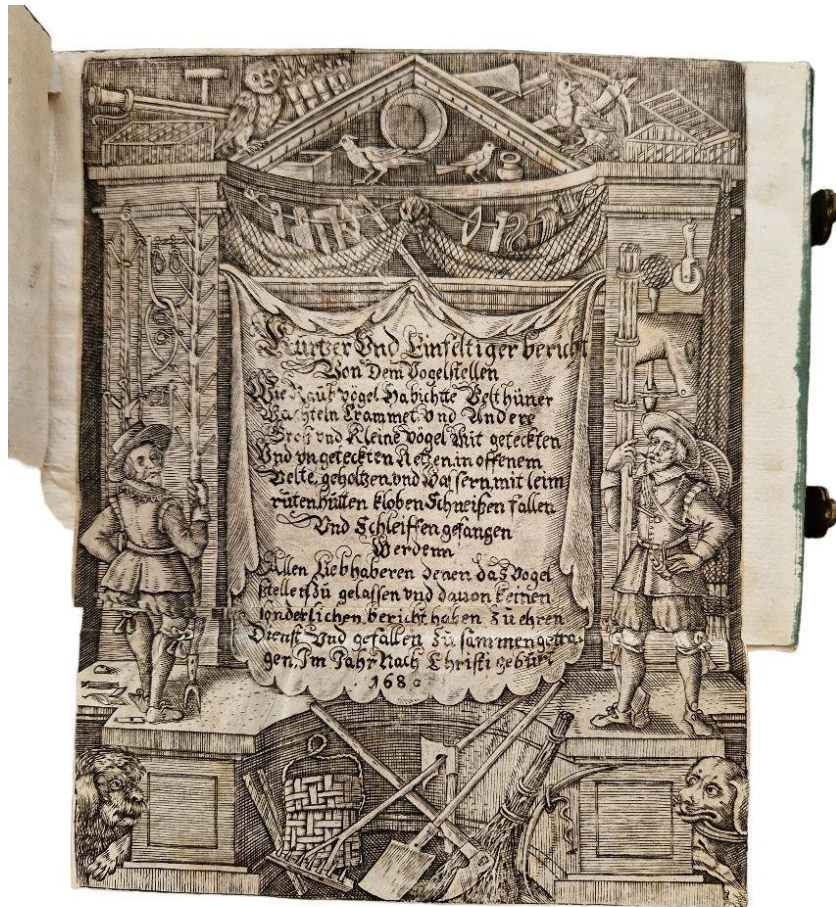 Kurtzer Vnd Einfeltiger bericht
Von Dem Vogelstellen
Wie Raub vögel Habichtte Velthüner
Wachteln Crammet vnd Andere
Groß vnd Kleine vögel Mit geteckten
Vnd vngeteckten Netzen in offenem
Velte, geholtzen vnd Wassern, mit leim
ruten hütten kloben Schneißen fallen
Vnd Schleiffen gefangen
Werdenn
Allen Liebhaberen denen das Vogel
stellen zu gelassen vnd dauon keinen
sonderlichen bericht haben zu ehren
Dienst Vnd gefallen zu sammen getra-
gen, Im Jahr Nach Christi gebürt
168